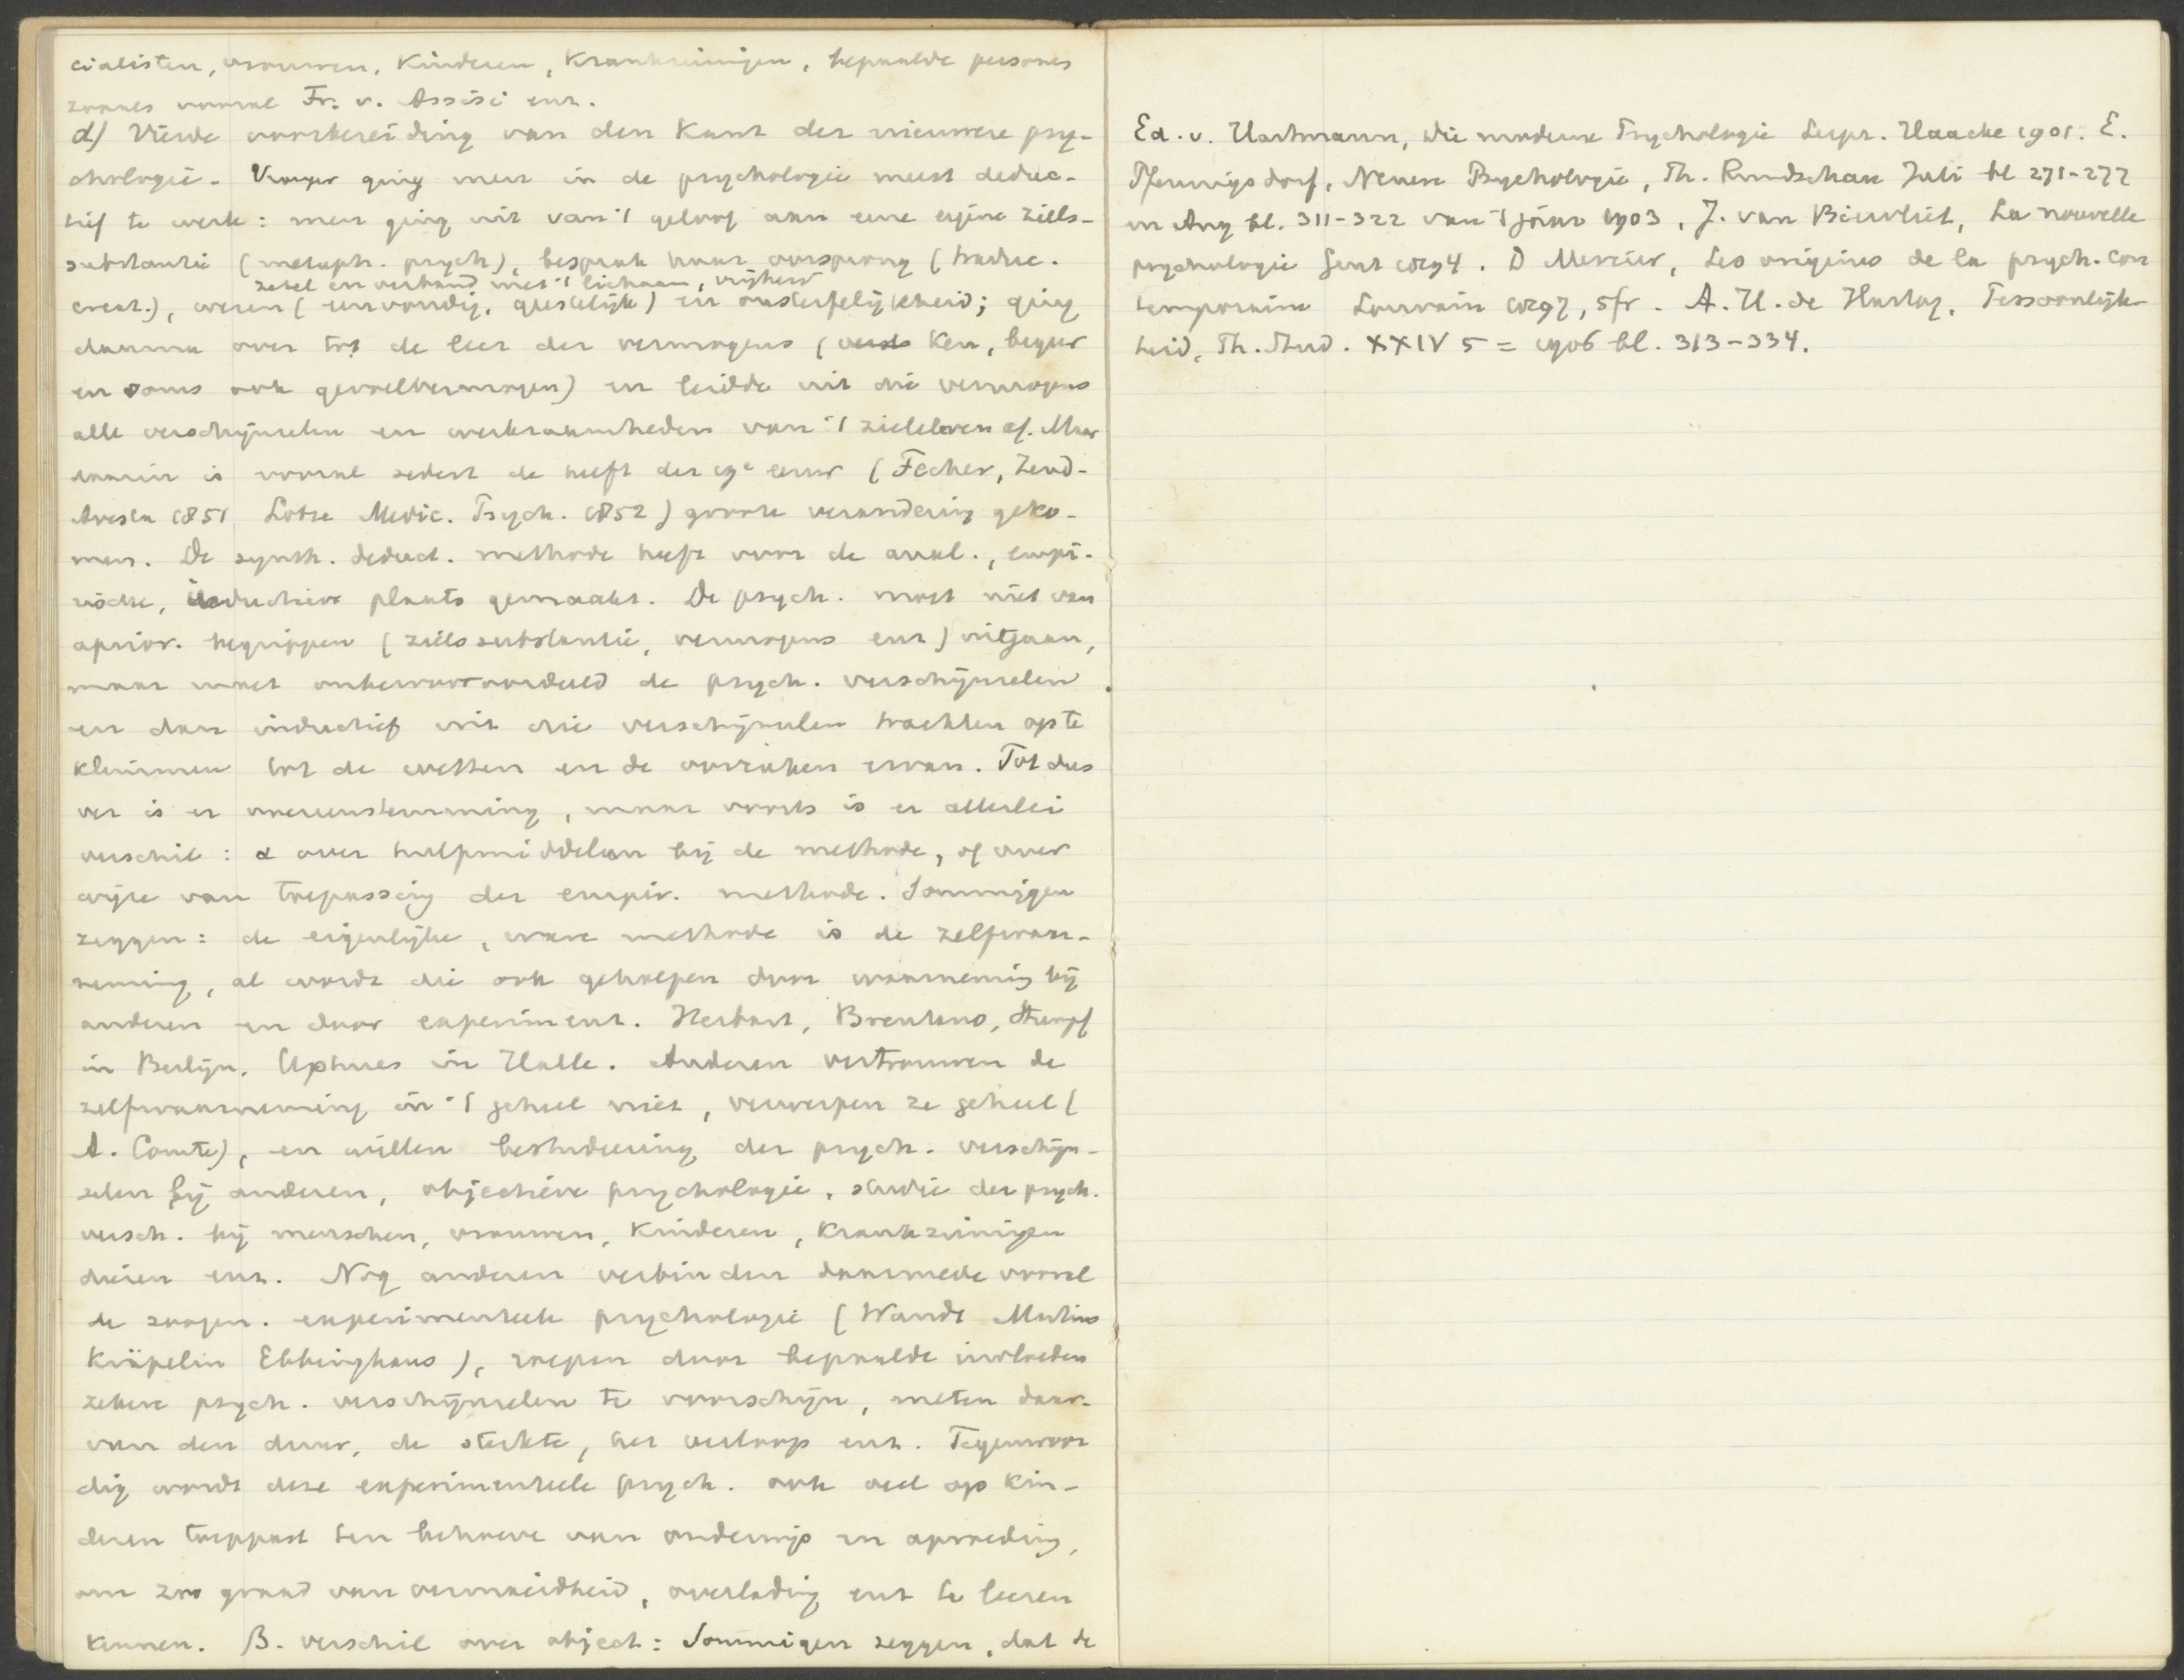 cialisten, vrouwen, Kinderen, Krankzinnigen, bepaalde personen
zooals vooral Fr. v. Assisi enz.
d) Vierde voorbereiding van den Kant der nieuwere psy-
chologie. Vroeger ging men in de psychologie meest deduc-
tief te werk: men ging uit van 't geloof aan eene eigene ziels-
substantie (metaph. psych), besprak haar oorsprong (traduc.
zetel en verband met 't lichaam, vrijheid
creat.), wezen (eenvoudig, geestelijk) en onsterfelijkheid; ging
daarna over tot de leer der vermogens (Ken, begeer
en soms ook gevoelvermogen) en leidde uit die vermogens
alle verschijnselen en werkzaamheden van 't zieleleven af. Maar
daarin is vooral sedert de helft der 19e eeuw (Fecher, Zend-
Avesta 1851 Lotze Medic. Psych. 1852) groote verandering geko-
men. De synth. deduct. methode heeft voor de anal., empi-
rische, inductieve plaats gemaakt. De psych. moet niet van
aprior. begrippen (zielssubstantie, vermogens enz) uitgaan,
maar moet onbevooroordeeld de psych. verschijnselen
en dan inductief uit die verschijnselen trachten op te
klimmen tot de wetten en de oorzaken ervan. Tot dus
ver is er overeenstemming, maar voorts is er allerlei
verschil: α over hulpmiddelen bij de methode, of over
wijze van toepassing der empir. methode. Sommigen
zeggen: de eigenlijke, ware methode is de zelfwaar-
neming, al wordt die ook geholpen door waarneming bij
anderen en door experiment. Herbart, Brentano, Stumpf
in Berlijn, Uphues in Halle. Anderen vertrouwen de
zelfwaarneming in 't geheel niet, verwerpen ze geheel (
A. Comte), en willen bestudeering der psych. verschijn-
selen bij anderen, objectieve psychologie, studie der psych.
versch. bij menschen, vrouwen, Kinderen, Krankzinnigen
dieren enz. Nog anderen verbinden daarmede vooral
de zoogen. experimenteele psychologie (Wundt Martius
Kräpelin Ebbinghaus), roepen door bepaalde invloeden
zekere psych. verschijnselen te voorschijn, meten daar-
van den duur, de sterkte, het verloop enz. Tegenwoor
dig wordt deze experimenteele psych. ook veel op Kin-
deren toegepast ten behoeve van onderwijs en opvoeding,
om zoo graad van vermoeidheid, overlading enz te leeren
kennen. β. verschil over object: Sommigen zeggen, dat de
Ed. v. Hartmann, Die moderne Psychologie Leipz. Haacke 1901. E.
Pfennigsdorf, Neuere Psychologie, Th. Rundschau Juli bl 271-277
en Aug bl. 311-322 van 't jaar 1903, J. van Biervliet, La nouvelle
psychologie Gent 1894. D Mercier, Les origines de la psych. con
temporaine Louvain 1897, 5fr. A. H. de Hartog, Persoonlijk-
heid, Th. Stud. XXIV 5 = 1906 bl. 313-334.